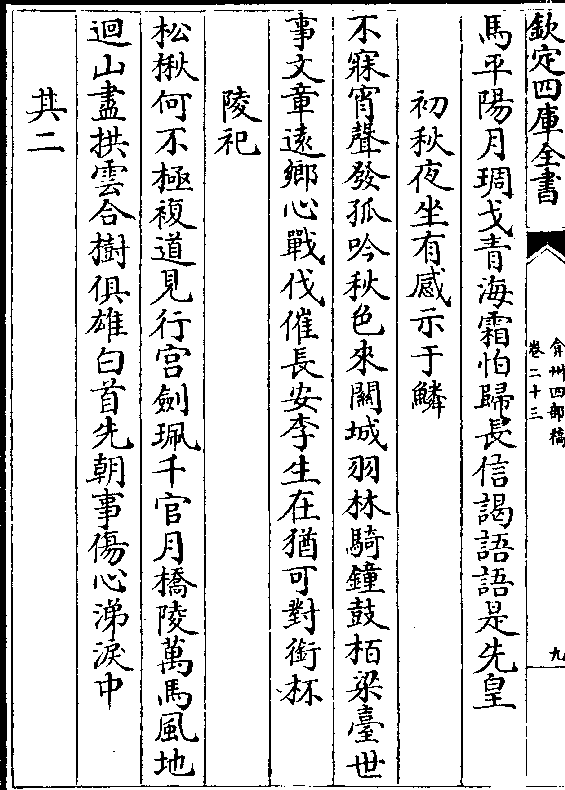 欽定四庫全書
弇州四部稿
卷二十三
九
馬平陽月琱戈青海霜怕歸長信謁語語是先皇
初秋夜坐有感示于鱗
不寐宵聲發孤吟秋色來關城羽林騎鐘鼓栢梁臺世
事文章逺鄉心戰伐催長安李生在猶可對銜杯
陵祀
松楸何不極複道見行宫劍珮千官月橋陵萬馬風地
迴山盡拱雲合樹俱雄白首先朝事傷心涕淚中
其二